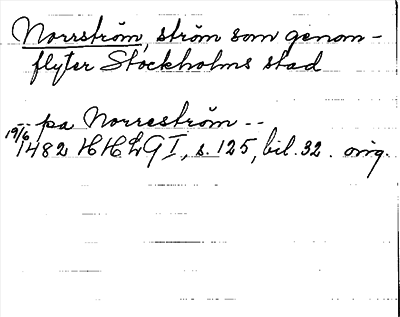 Norrström, ström som genom-
flyter Stockholms stad
-- pa Norreström --
19/6 1482 HHLG I, s. 125, bil. 32. orig.